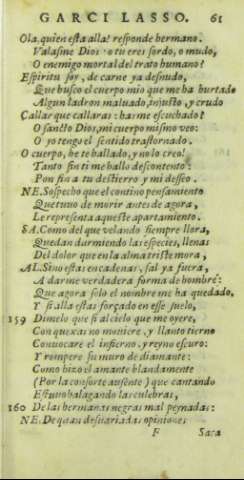 GARCI LASSO. 61
Ola, quien esta alla? responde hermano.
Valasme Dios: o tu eres sordo, o mudo,
O enemigo mortal del trato humano?
Espiritu soy, de carne ya desnudo,
Que busco el cuerpo mio que me ha hurtado
Algun ladron maluado, injusto, y crudo
Callar que callaras: has me escuchado?
O sancto Dios, mi cuerpo mismo veo:
O yo tengo el sentido trastornado.
O cuerpo, he te ballado, y no lo creo!
Tanto sin ti me hallo descontento:
Pon fin a tu destierro y mi desseo.
NE. Sospecho que el contino pensamiento
Que tuuo de morir antes de agora,
Le representa aqueste apartamiento.
SA. Como del que velando siempre llora,
Quedan durmiendo las especies, llenas
Del dolor que en la alma triste mora,
AL. Sino estas en cadenas, sal ya fuera,
A darme verdadera forma de hombre:
Que agora solo el nombre me ha quedado,
Y si alla estas forçado en esse suelo,
159 Dimelo que si al cielo que me oyere,
Con quexas no mouiere, y llanto tierno
Conuocare el infierno, y reyno escuro:
Y rompere su muro de diamante:
Como hizo el amante blandamente
(Por la consorte ausente) que cantando
Estuuo halagando las culebras,
160 De las hermanas negras mal peynadas:
NE. De quan desuariadas opiniones
F Saca